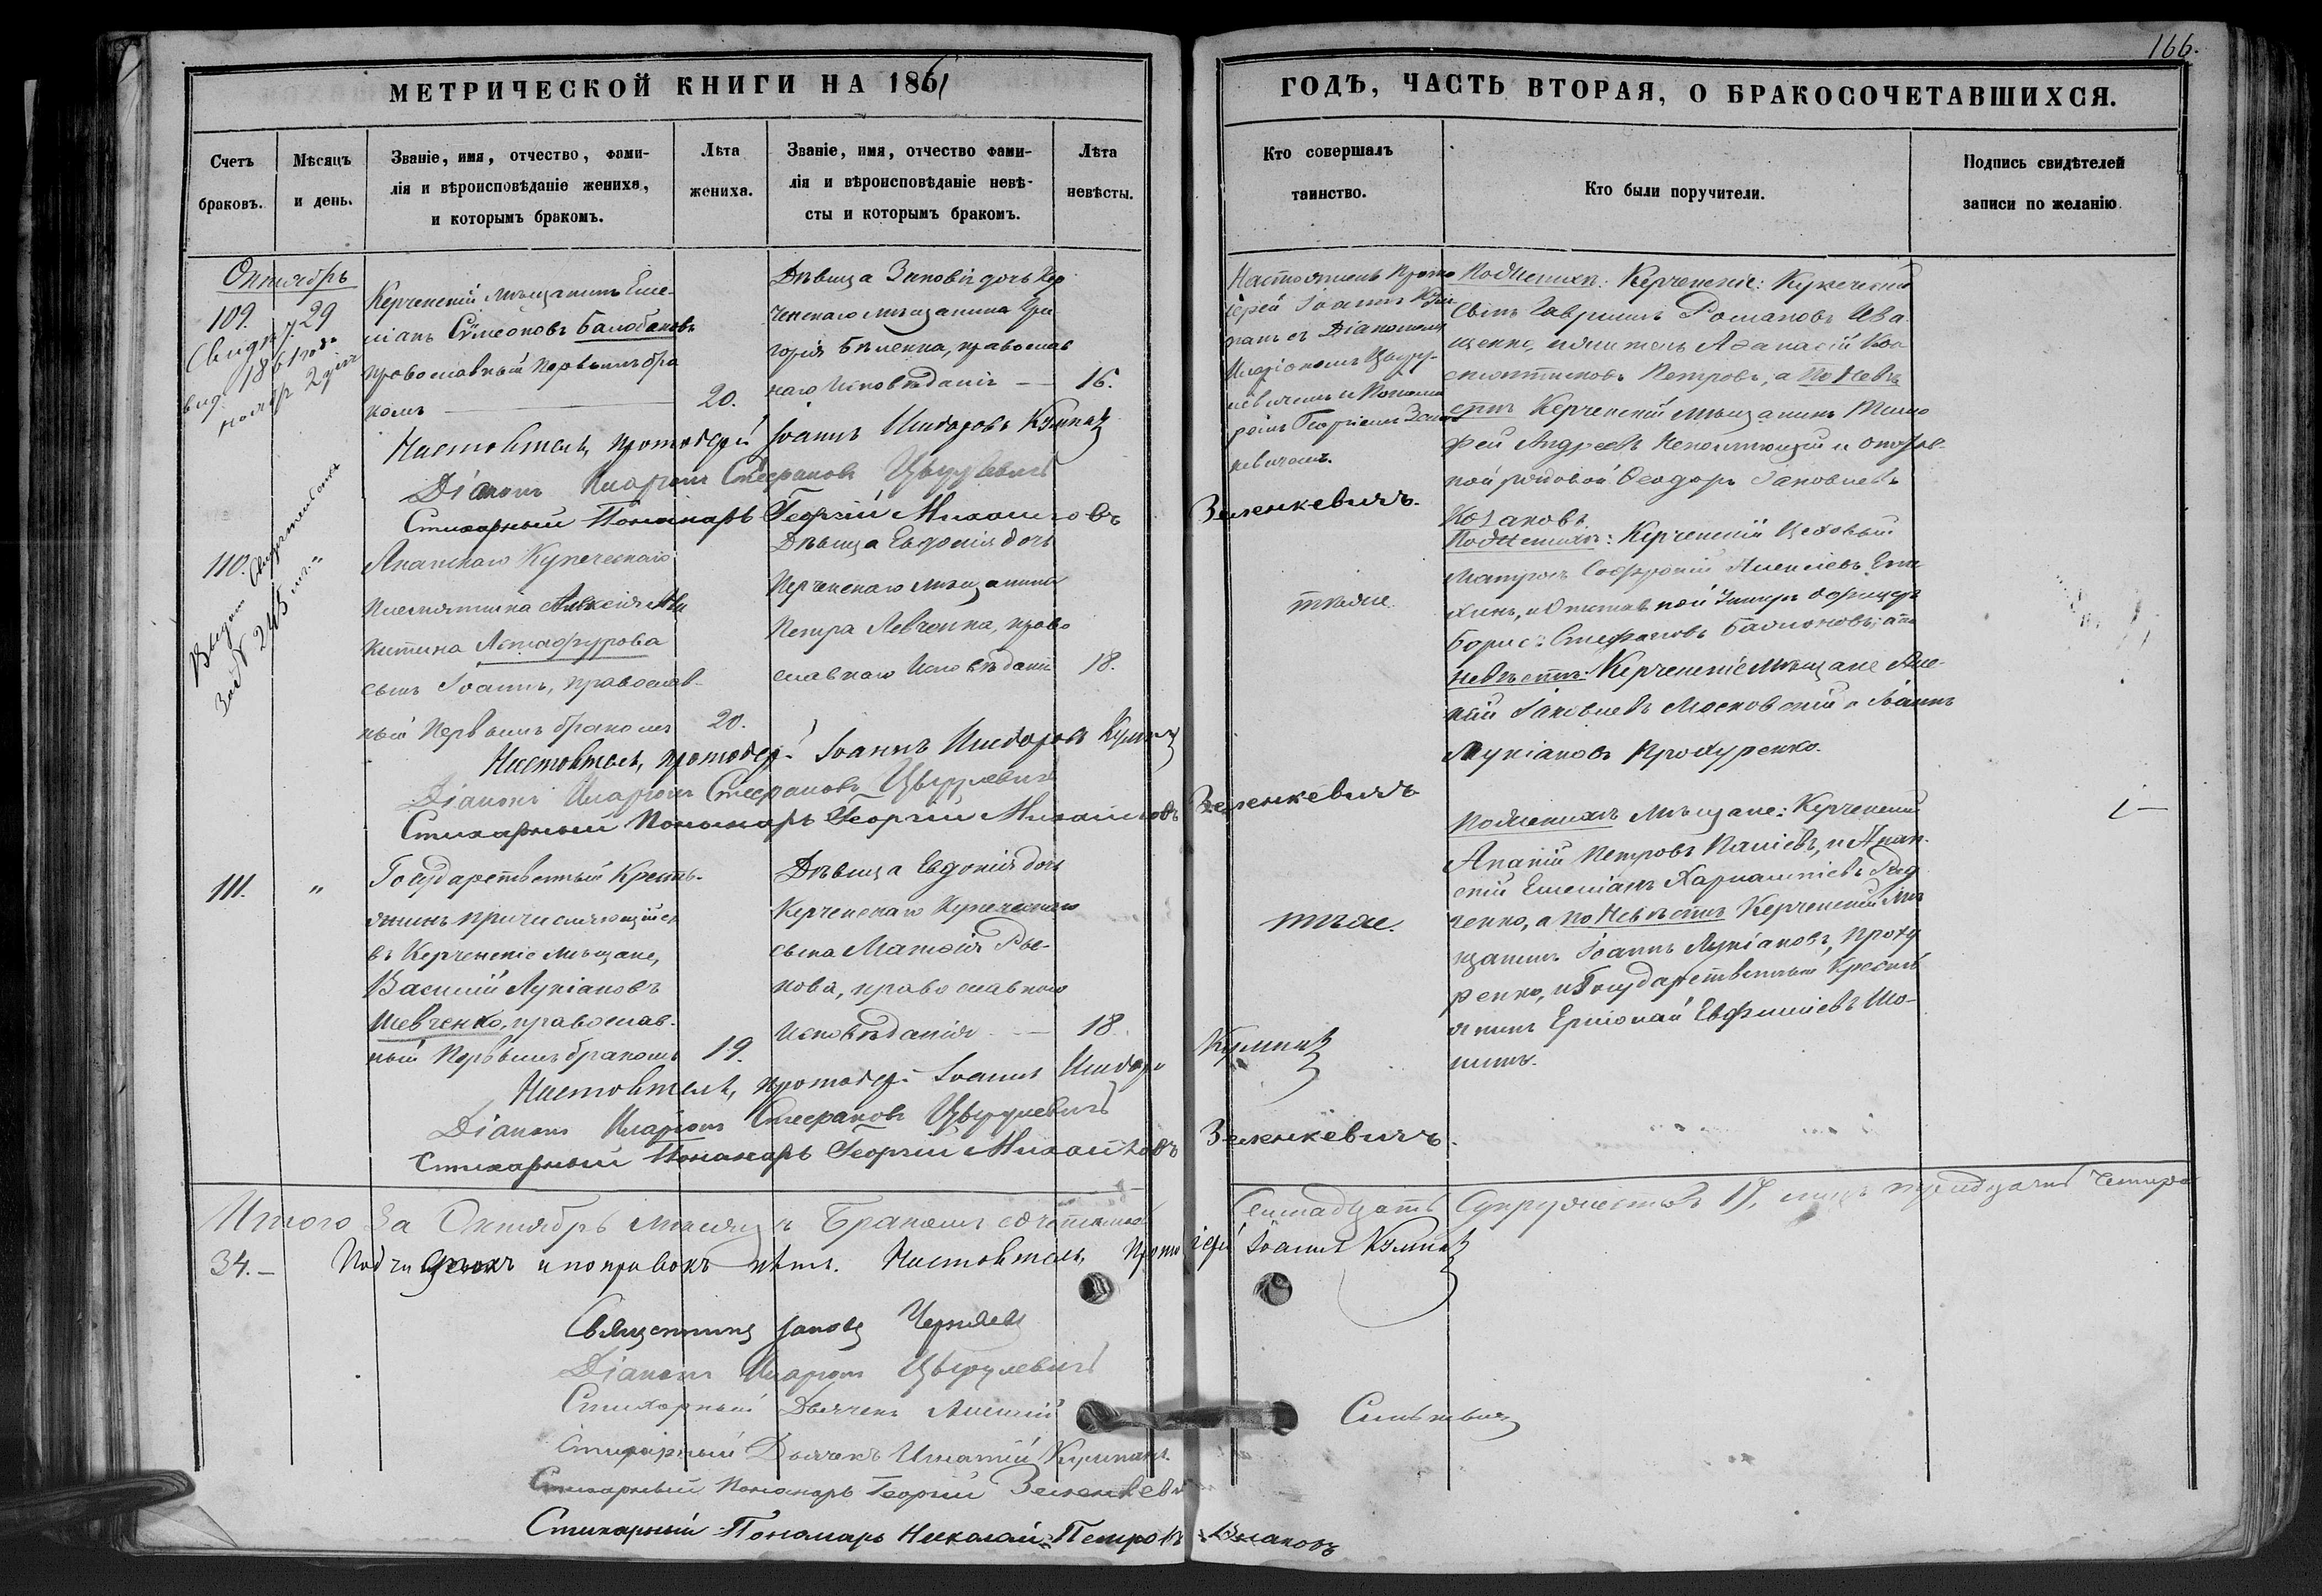 166.
МЕТРИЧЕСКОЙ КНИГИ НА 1861
ГОДЪ, ЧАСТЬ ВТОРАЯ, О БРАКОСОЧЕТАВШИХСЯ.
Счетъ
браковъ.
Мѣсяцъ
и день.
Званіе, имя, отчество, фами-
лія и вѣроисповѣданіе жениха,
и которымъ бракомъ.
Лѣта
жениха.
Званіе, имя, отчество фами-
лія и вѣроисповѣданіе невѣ-
сты и которымъ бракомъ.
Лѣта
невѣсты.
Кто совершалъ
таинство.
Кто были поручители.
Подпись свидѣтелей
записи по желанію
Октябрь
109.
29
1861
Керченскій мѣщанинъ Еме-
ліанъ Сѵмеоновъ Балобановъ
православный первымъ бра
комъ
20.
Дѣвица Зиновія дочь Кер
ченскаго мѣщанина Гри
горія Бѣленка, православ
наго исповѣданія
16.
Настоятель прото
іерей Іоаннъ
съ Діакономъ
Иларіономъ Цыру-
левичемъ и Понома
ремъ Георгіемъ Зелен
кевичемъ.
По женихѣ: Керченскіе: Купеческій
сынъ Гавріилъ Романовъ Ива
щенко, Аѳанасій Кон
стантиновъ Петровъ, а по невѣ
стѣ Керченскій мѣщанинъ Тимо
фей Андреевъ и отстав-
ной рядовой Ѳеодоръ Іаковлевъ
Козаковъ.
Настоятель, протоіерей Іоаннъ Исидоровъ
Діаконъ Иларіонъ Стефановъ Цырулевичъ
Стихарный Пономарь Георгій Михаиловъ Зеленкевичъ.
110.
"
Выдано свидѣтельство
за № 245
Анапскаго Купеческаго
племянника Алексія Ни
китина Астафурова
сынъ Іоаннъ, православ-
ный первымъ бракомъ
20.
Дѣвица Евдокія дочь
Керченскаго мѣщанина
Петра Левченка, право
славнаго исповѣданія
18.
тѣже.
По женихѣ: Керченскій цеховый
Матросъ Софроній Алексіевъ
и отставной Унтеръ офицеръ
Борисъ Стефановъ а по
невѣстѣ: Керченскіе мѣщане Але-
ксій Іаковлевъ Московскій и Іоаннъ
Лукіановъ Прохуренко.
Настоятель, протоіер. Іоаннъ Исидоровъ
Діаконъ Иларіонъ Стефановъ Цырулевичъ
Стихарный Пономарь Георгій Михаиловъ Зеленкевичъ
111.
"
Государственный Кресть-
янинъ причисляющійся
въ Керченскіе мѣщане,
Василій Лукіановъ
Шевченко, православ-
ный первымъ бракомъ
19.
Дѣвица Евдокія дочь
Керченскаго Купеческаго
сына Матвія Ры-
кова, православнаго
исповѣданія
18.
тѣже.
По женихѣ мѣщане: Керченскій
Ананій Петровъ и Анап-
скій Емеліанъ Харлампіевъ Ряд
ченко, а по невѣстѣ Керченскій мѣ
щанинъ Іоаннъ Лукіановъ, Проху
ренко, и Государственный Кресть
янинъ Ермолай Евфиміевъ
Настоятель, протоіер. Іоаннъ Исидоро
Діаконъ Иларіонъ Стефановъ Цырулевичъ
Стихарный Пономарь Георгій Михаиловъ Зеленкевичъ.
Итого за Октябрь мѣсяцъ Бракомъ сочетанно Семнадцать Супружествъ 17, лицъ тридцать четыре
34.— Подчистокъ и поправокъ нѣтъ. Настоятель, Протоіерей Іоаннъ
Священникъ Іаковъ Черняевъ
Діаконъ Иларіонъ Цырулевичъ
Стихарный Дьячекъ
Стихарный Дьячекъ Игнатій
Стихарный Пономарь Георгій Зеленкеви
Стихарный Пономарь Николай Петровъ